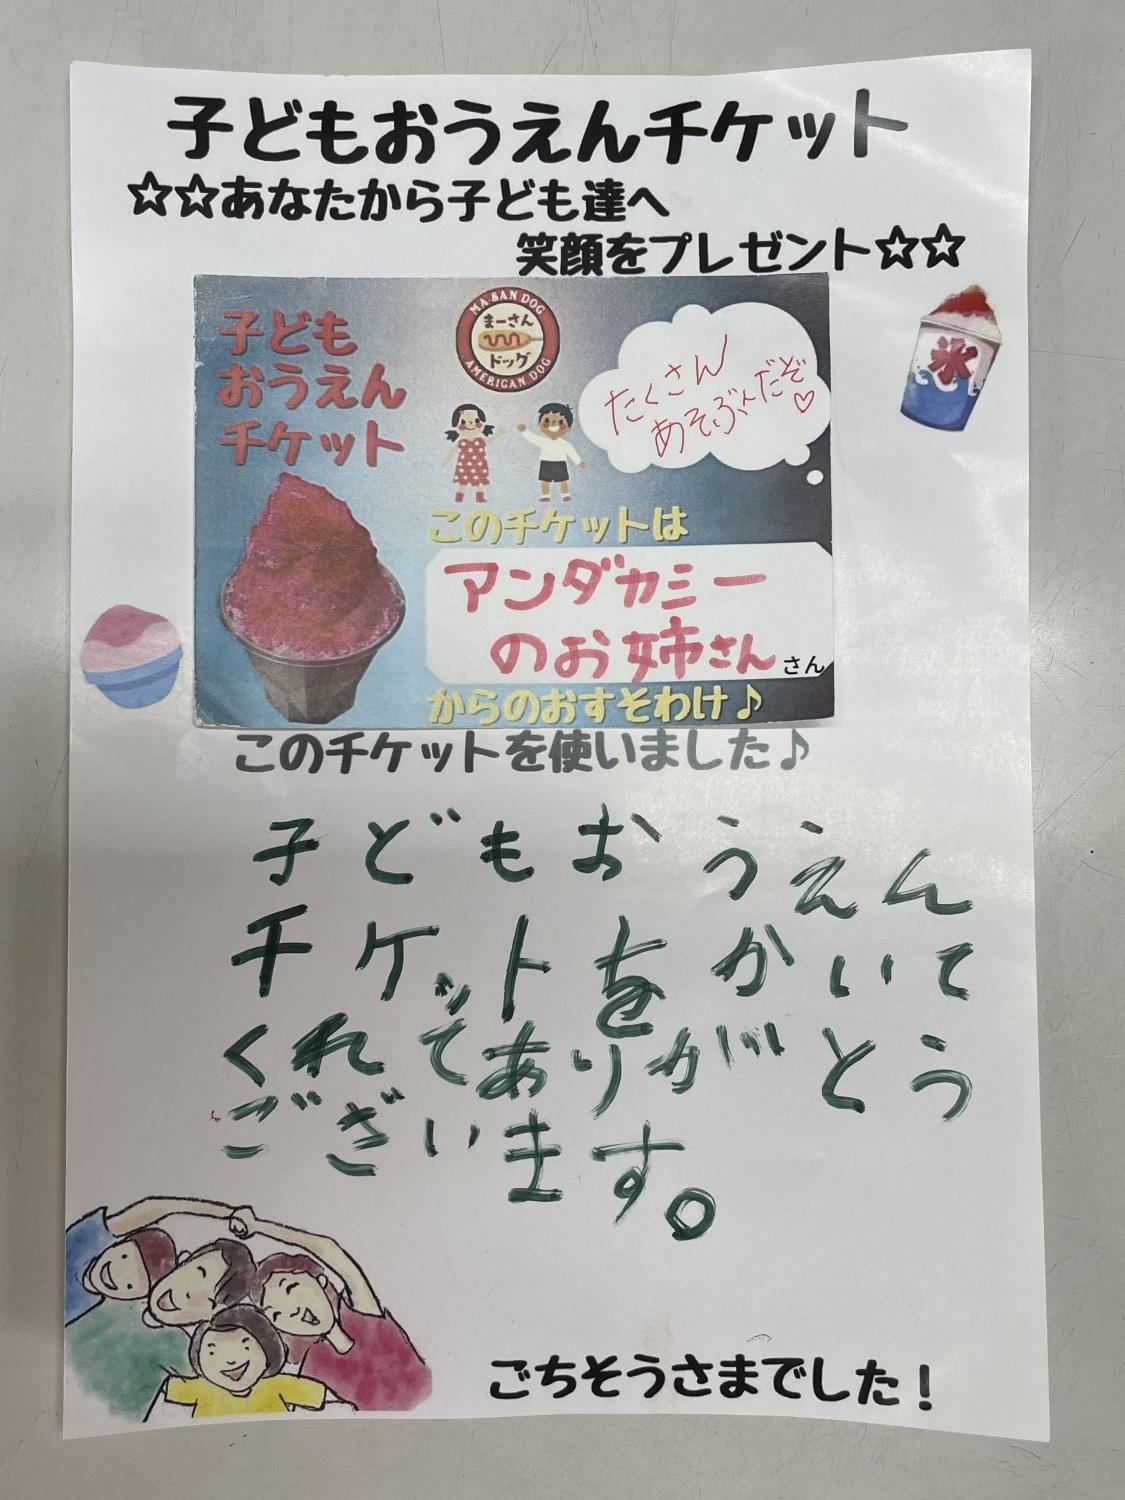 子どもおうえんチケット
☆☆あなたから子ども達へ
笑顔をプレゼント☆☆
子ども
おうえん
チケット
MA SAN DOG
まーさん
ドッグ
AMERICAN DOG
たくさん
あそぶんだぞ♡
氷
このチケットは
アンダカミー
のお姉さん
さん
からのおすそわけ♪
このチケットを使いました♪
子どもおうえん
チケットをかいて
くれてありがとう
ございます。
ごちそうさまでした！